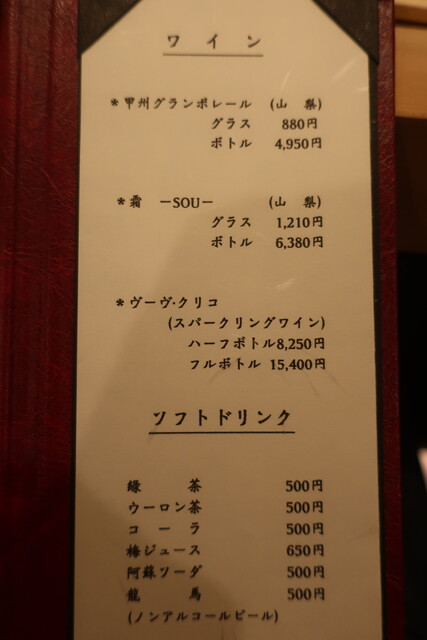 ワイン
*甲州グランポレール (山 梨)
グラス 880円
ボトル 4,950円
*霜 ーSOUー (山 梨)
グラス 1,210円
ボトル 6,380円
*ヴーヴ・クリコ
(スパークリングワイン)
ハーフボトル8,250円
フルボトル 15,400円
ソフトドリンク
緑 茶 500円
ウーロン茶 500円
コ ー ラ 500円
梅ジュース 650円
阿蘇ソーダ 500円
龍 馬 500円
(ノンアルコールビール)